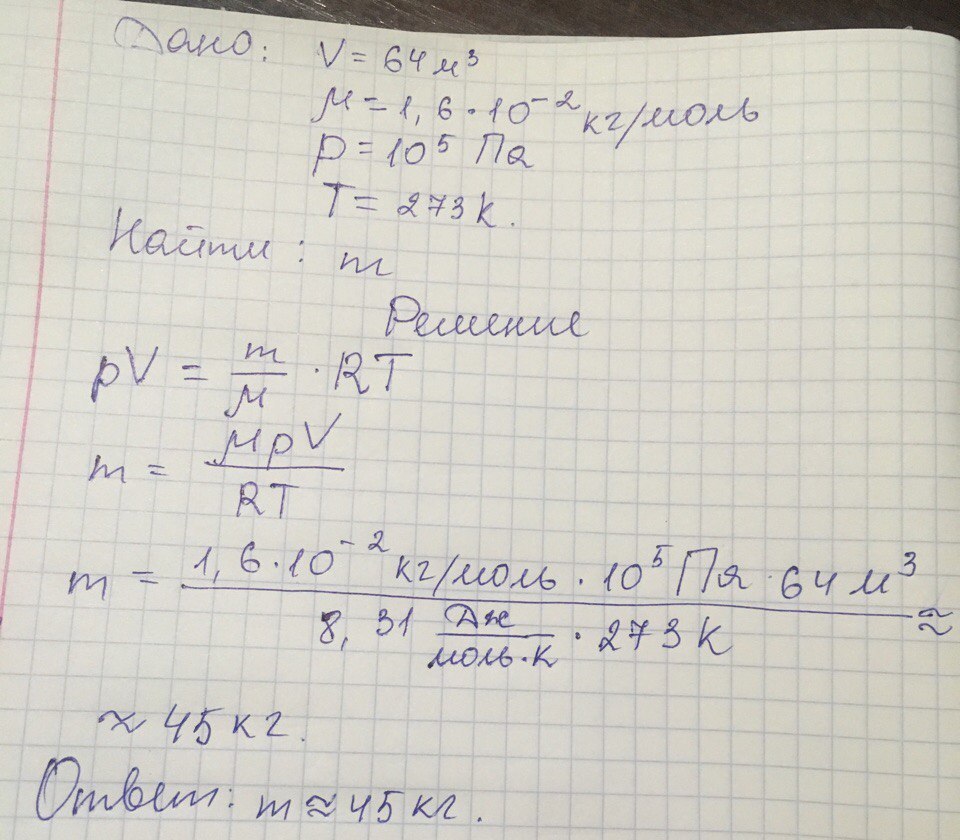 Дано: V = 64 м³
μ = 1,6 · 10⁻² кг/моль
p = 10⁵ Па
T = 273 К.
Найти: m
Решение
pV = m/μ · RT
m = μpV/RT
m = 1,6·10⁻² кг/моль · 10⁵ Па · 64 м³ / 8,31 Дж/моль·К · 273 К ≈
≈ 45 кг.
Ответ: m ≈ 45 кг.